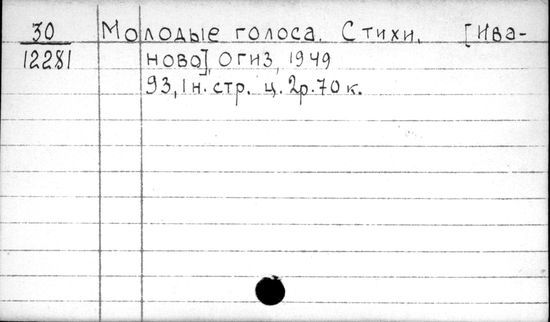 30 Молодые голоса. Стихи. [Ива-
12281 ново], ОГИЗ, 1949
93,1 н. стр. ц. 2р.70 к.